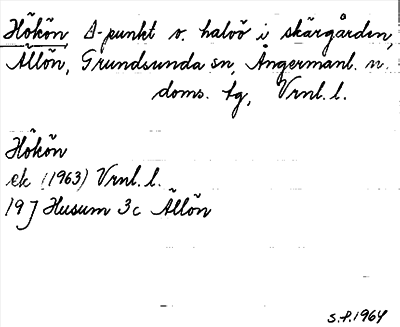 Hökön Δ-punkt o. halvö i skärgården,
Ällön, Grundsunda sn, Ångermanl. n.
doms. tg, Vrnl. l.
Hökön
ek (1963) Vrnl. l.
19 J Husum 3c Ällön
S.P. 1964